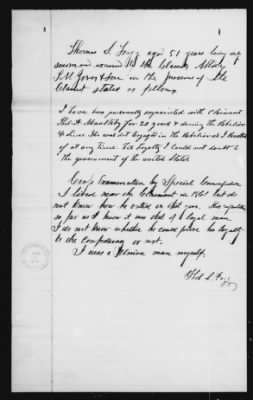 Thomas S. Foy aged 51 years being duly
sworn and examined by the Claims Attorney
J.W. Jones & Son in the presence of the
Claimant states as follows
I have been personally acquainted with Claimant
for 20 years & during the Rebellion
& Since He was not Engaged in the Rebellion as I
of at any time His loyalty I could not doubt to
the government of the united States
Cross Examination by Special Commissioner
I lived near the Claimant in 1861 but do
not know how he voted in that year. His reputation
so far as I know it was that of a loyal man.
I do not know whether he could prove his loyalty
to the Confederacy or not.
I was a Union man myself.
Thos S. Foy